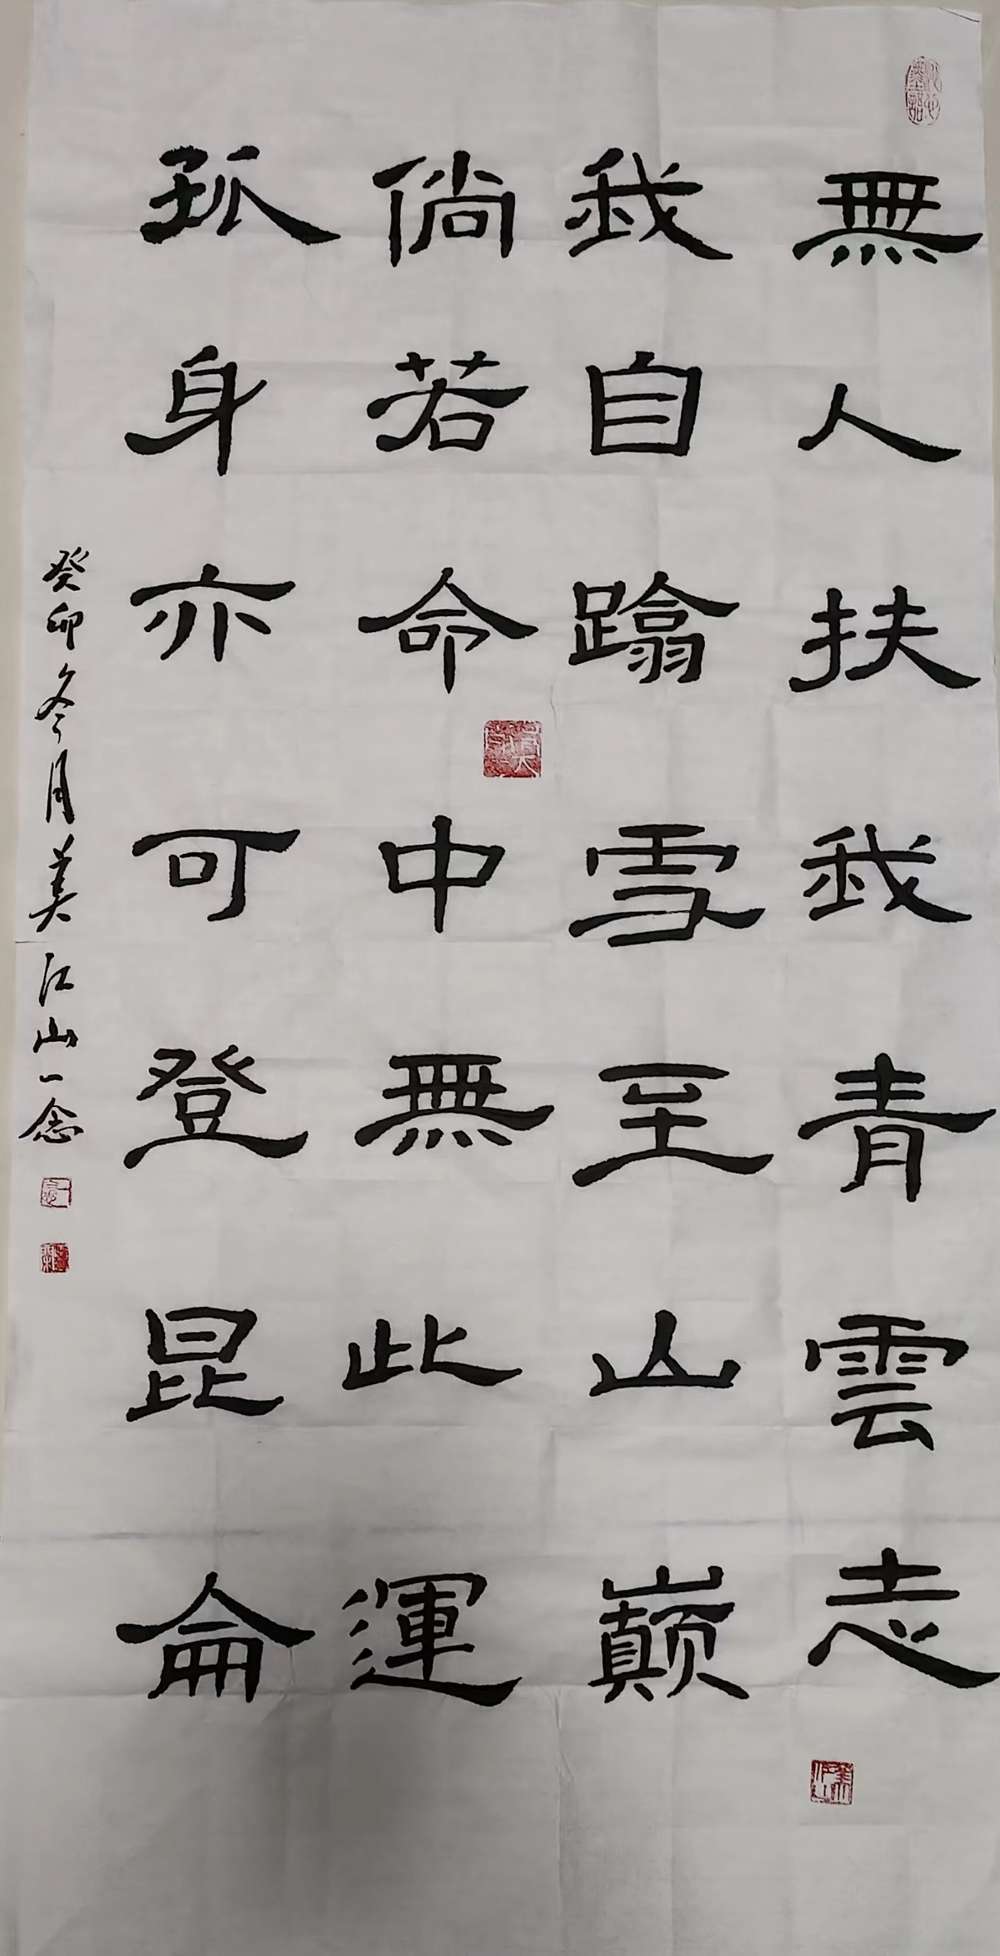 無人扶我青雲志
我自蹹雪至山巅
倘若命中無此運
孤身亦可登昆侖
癸卯冬月美江山一念